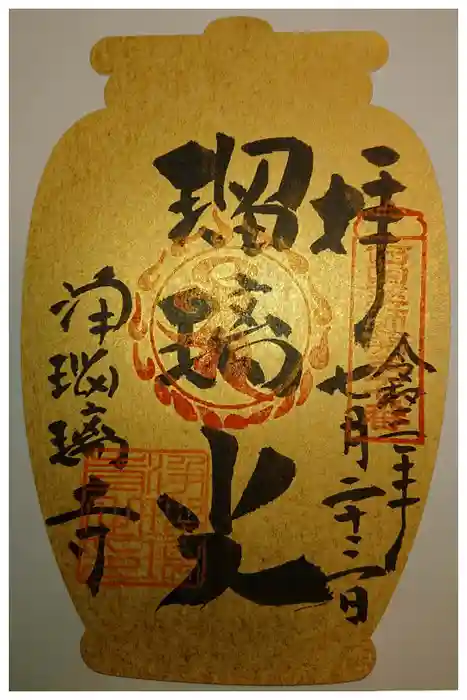 奉拝
令和三年
七月二十三日
瑠璃光
浄瑠璃寺